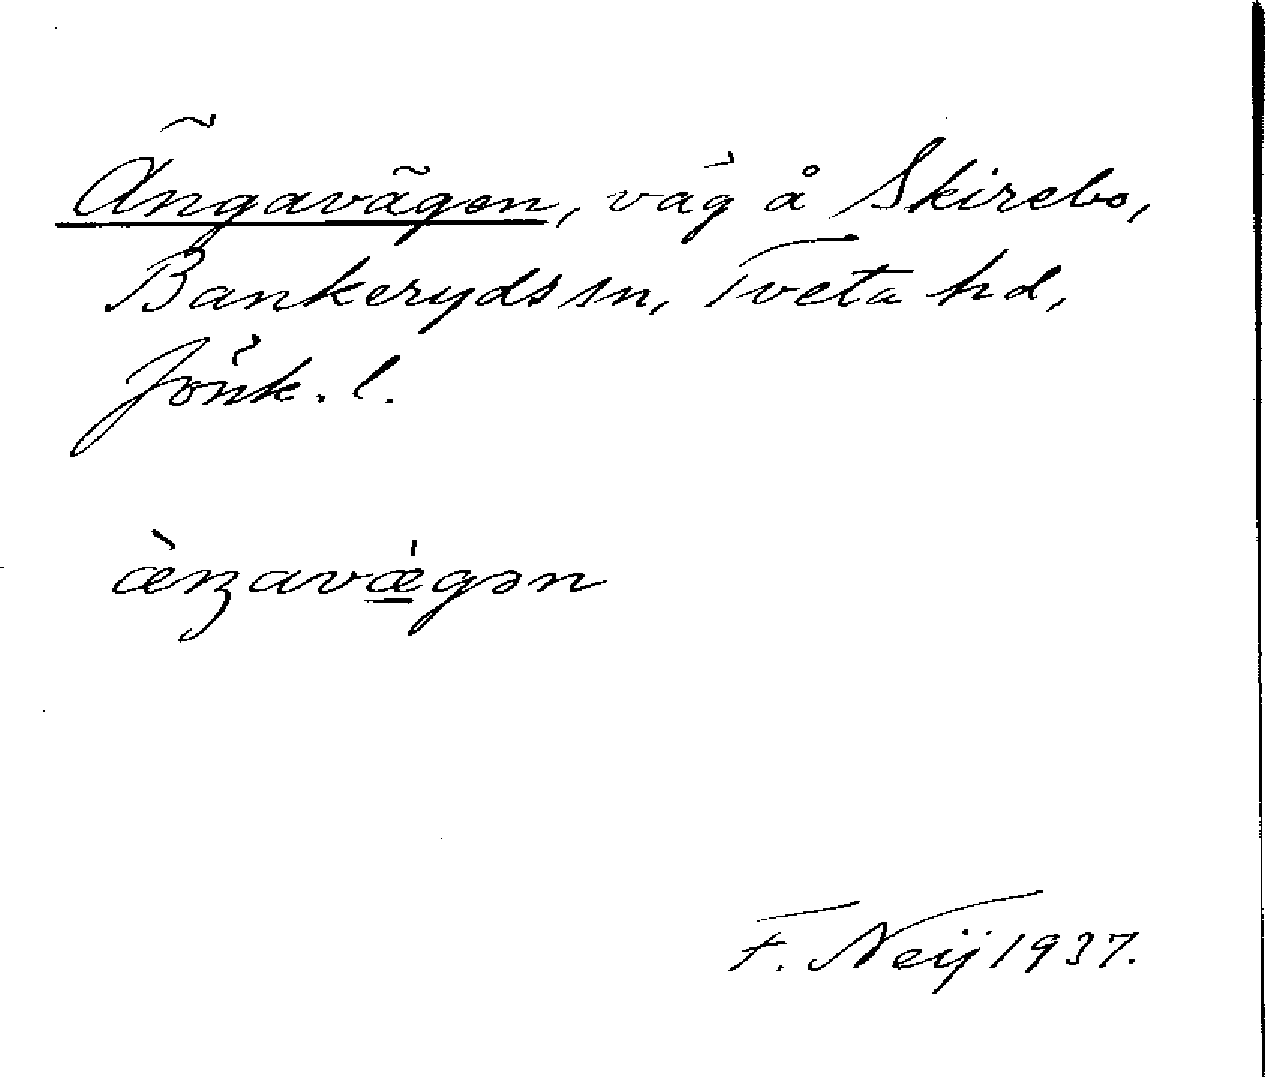 Ängavägen, väg å Skirebo,
Bankeryds sn, Tveta hd,
Jönk. l.
æ̀ŋavǽgən
F. Neij 1937.